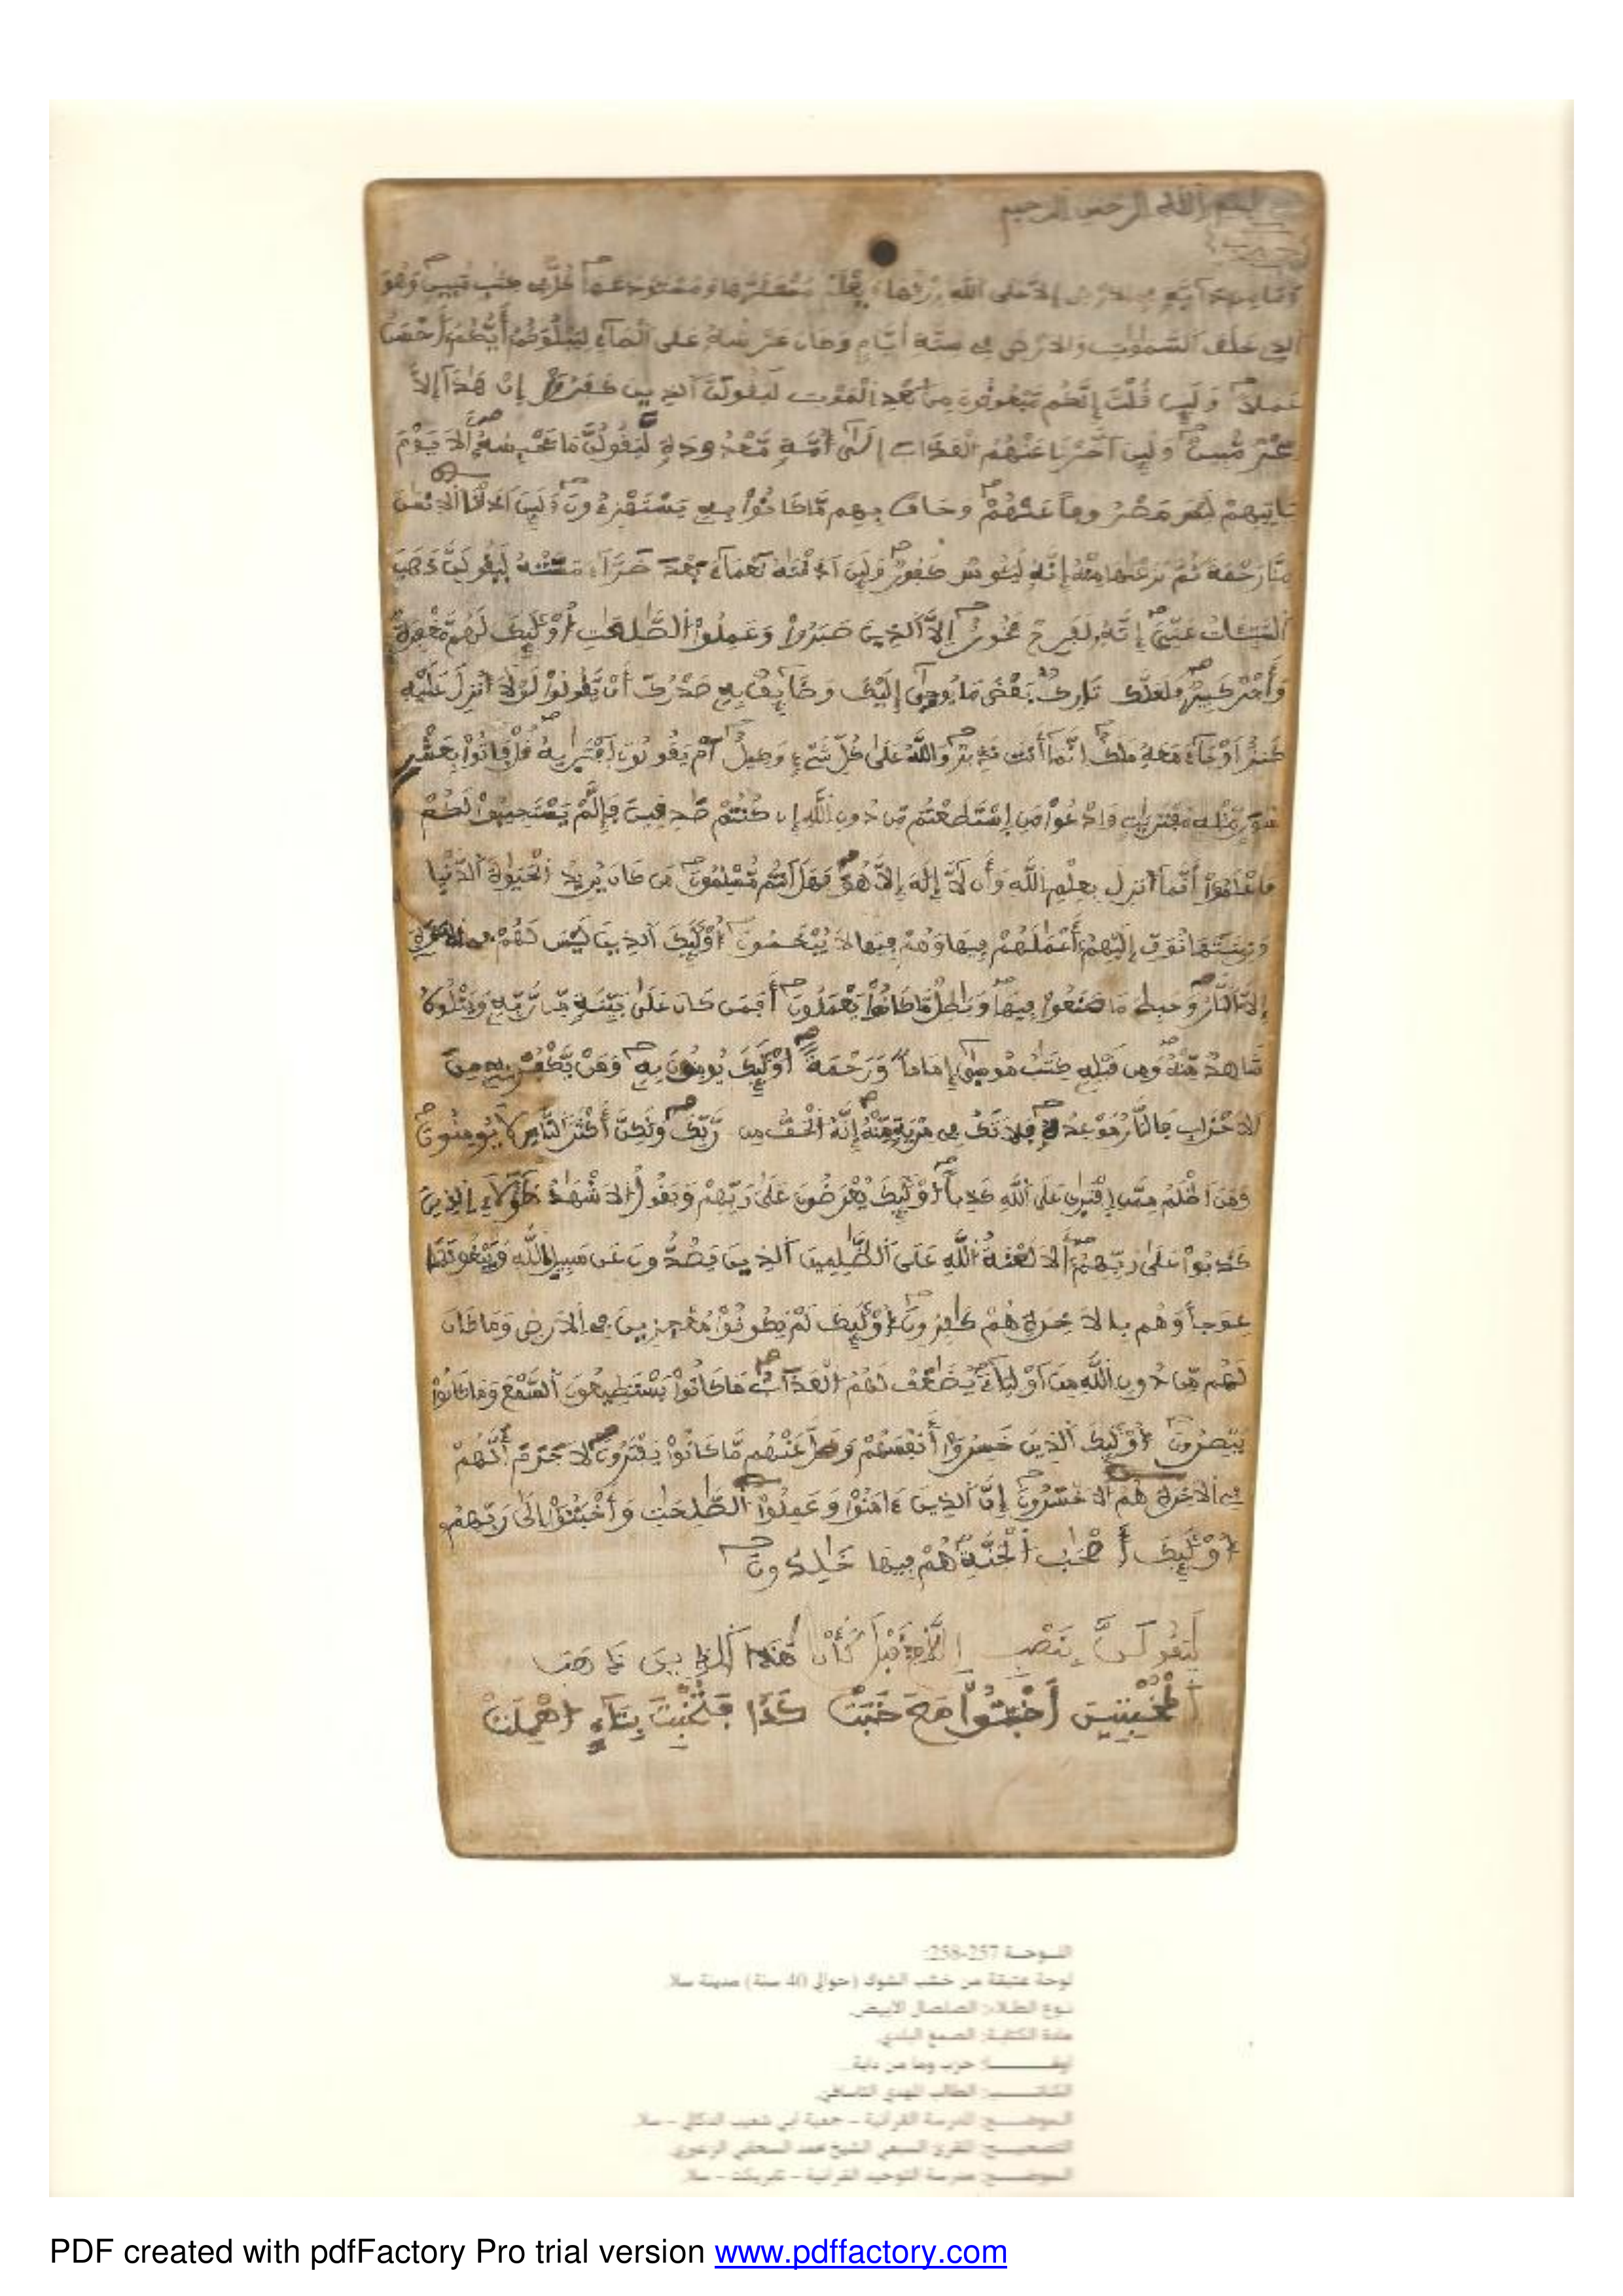 بسم الله الرحمن الرحيم
وما من دآبة في الارض إلا على الله رزقها ويعلم مستقرها ومستودعها كل في كتب مبين وهو
الذي خلق السموت والارض في ستة أيام وكان عرشه على الماء ليبلوكم أيكم أحسن
عملا ولين قلت إنكم مبعوثون من بعد الموت ليقولن الذين كفروا إن هذا إلا
سحر مبين ولين أخرنا عنهم العذاب إلى أمة معدودة ليقولن ما يحبسه ألا يوم
ياتيهم ليس مصروفا عنهم وحاق بهم ما كانوا به يستهزءون ولين أذقنا الانسن
منا رحمة ثم نزعنها منه إنه ليئوس كفور ولين أذقنه نعماء بعد ضراء مسته ليقولن ذهب
السيئات عني إنه لفرح فخور إلا الذين صبروا وعملوا الصلحت أولئك لهم مغفرة
وأجر كبير فلعلك تارك بعض ما يوحى إليك وضائق به صدرك أن يقولوا لولا أنزل عليه
كنز أو جاء معه ملك إنما أنت نذير والله على كل شيء وكيل أم يقولون افتريه قل فاتوا بعشر
سور مثله مفتريت وادعوا من استطعتم من دون الله إن كنتم صدقين فإلم يستجيبوا لكم
فاعلموا أنما أنزل بعلم الله وأن لا إله إلا هو فهل أنتم مسلمون من كان يريد الحيوة الدنيا
وزينتها نوف إليهم أعملهم فيها وهم فيها لا يبخسون أولئك الذين ليس لهم في الاخرة
إلا النار وحبط ما صنعوا فيها وبطل ما كانوا يعملون أفمن كان على بينة من ربه ويتلوه
شاهد منه ومن قبله كتب موسى إماما ورحمة أولئك يومنون به ومن يكفر به من
الاحزاب فالنار موعده فلا تك في مرية منه إنه الحق من ربك ولكن أكثر الناس لا يومنون
ومن أظلم ممن افترى على الله كذبا أولئك يعرضون على ربهم ويقول الاشهد هؤلاء الذين
كذبوا على ربهم ألا لعنة الله على الظلمين الذين يصدون عن سبيل الله ويبغونها
عوجا وهم بالاخرة هم كفرون أولئك لم يكونوا معجزين في الارض وما كان
لهم من دون الله من أولياء يضعف لهم العذاب ما كانوا يستطيعون السمع وما كانوا
يبصرون أولئك الذين خسروا أنفسهم وضل عنهم ما كانوا يفترون لا جرم أنهم
في الاخرة هم الاخسرون إن الذين ءامنوا وعملوا الصلحت وأخبتوا إلى ربهم
أولئك أصحب الجنة هم فيها خلدون
ليقولن بنصب
المخبتين أخبتوا مع خبت كذا
اللوحة 257-258:
لوحة عتيقة من خشب الشوك (حوالي 40 سنة) مدينة سلا.
نوع الطلاء: الصلصال الابيض.
مادة الكتابة: الصمغ البلدي.
حزب وما من دابة.
الكاتب: الطالب المهدي
الموضع: المدرسة القرآنية - جمعية أبي شعيب الدكالي - سلا.
التصحيح: المقرئ السبعي الشيخ محمد السحابي الزعيري.
الموضع: مدرسة التوحيد القرآنية - تابريكت - سلا.
PDF created with pdfFactory Pro trial version www.pdffactory.com